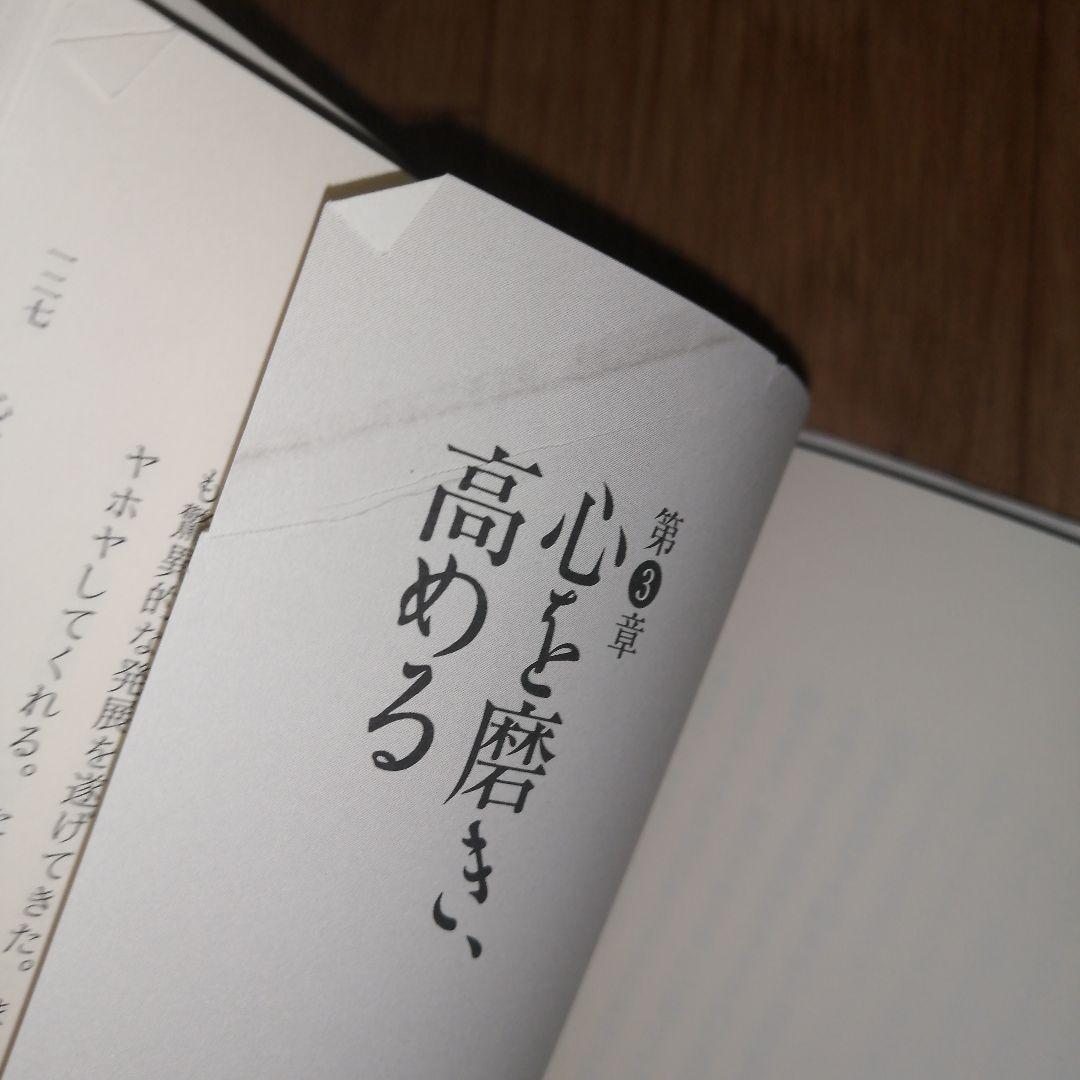 第3章
心を磨き、
高める
も驚異的な発展を遂げてきた。
ヤホヤしてくれる。